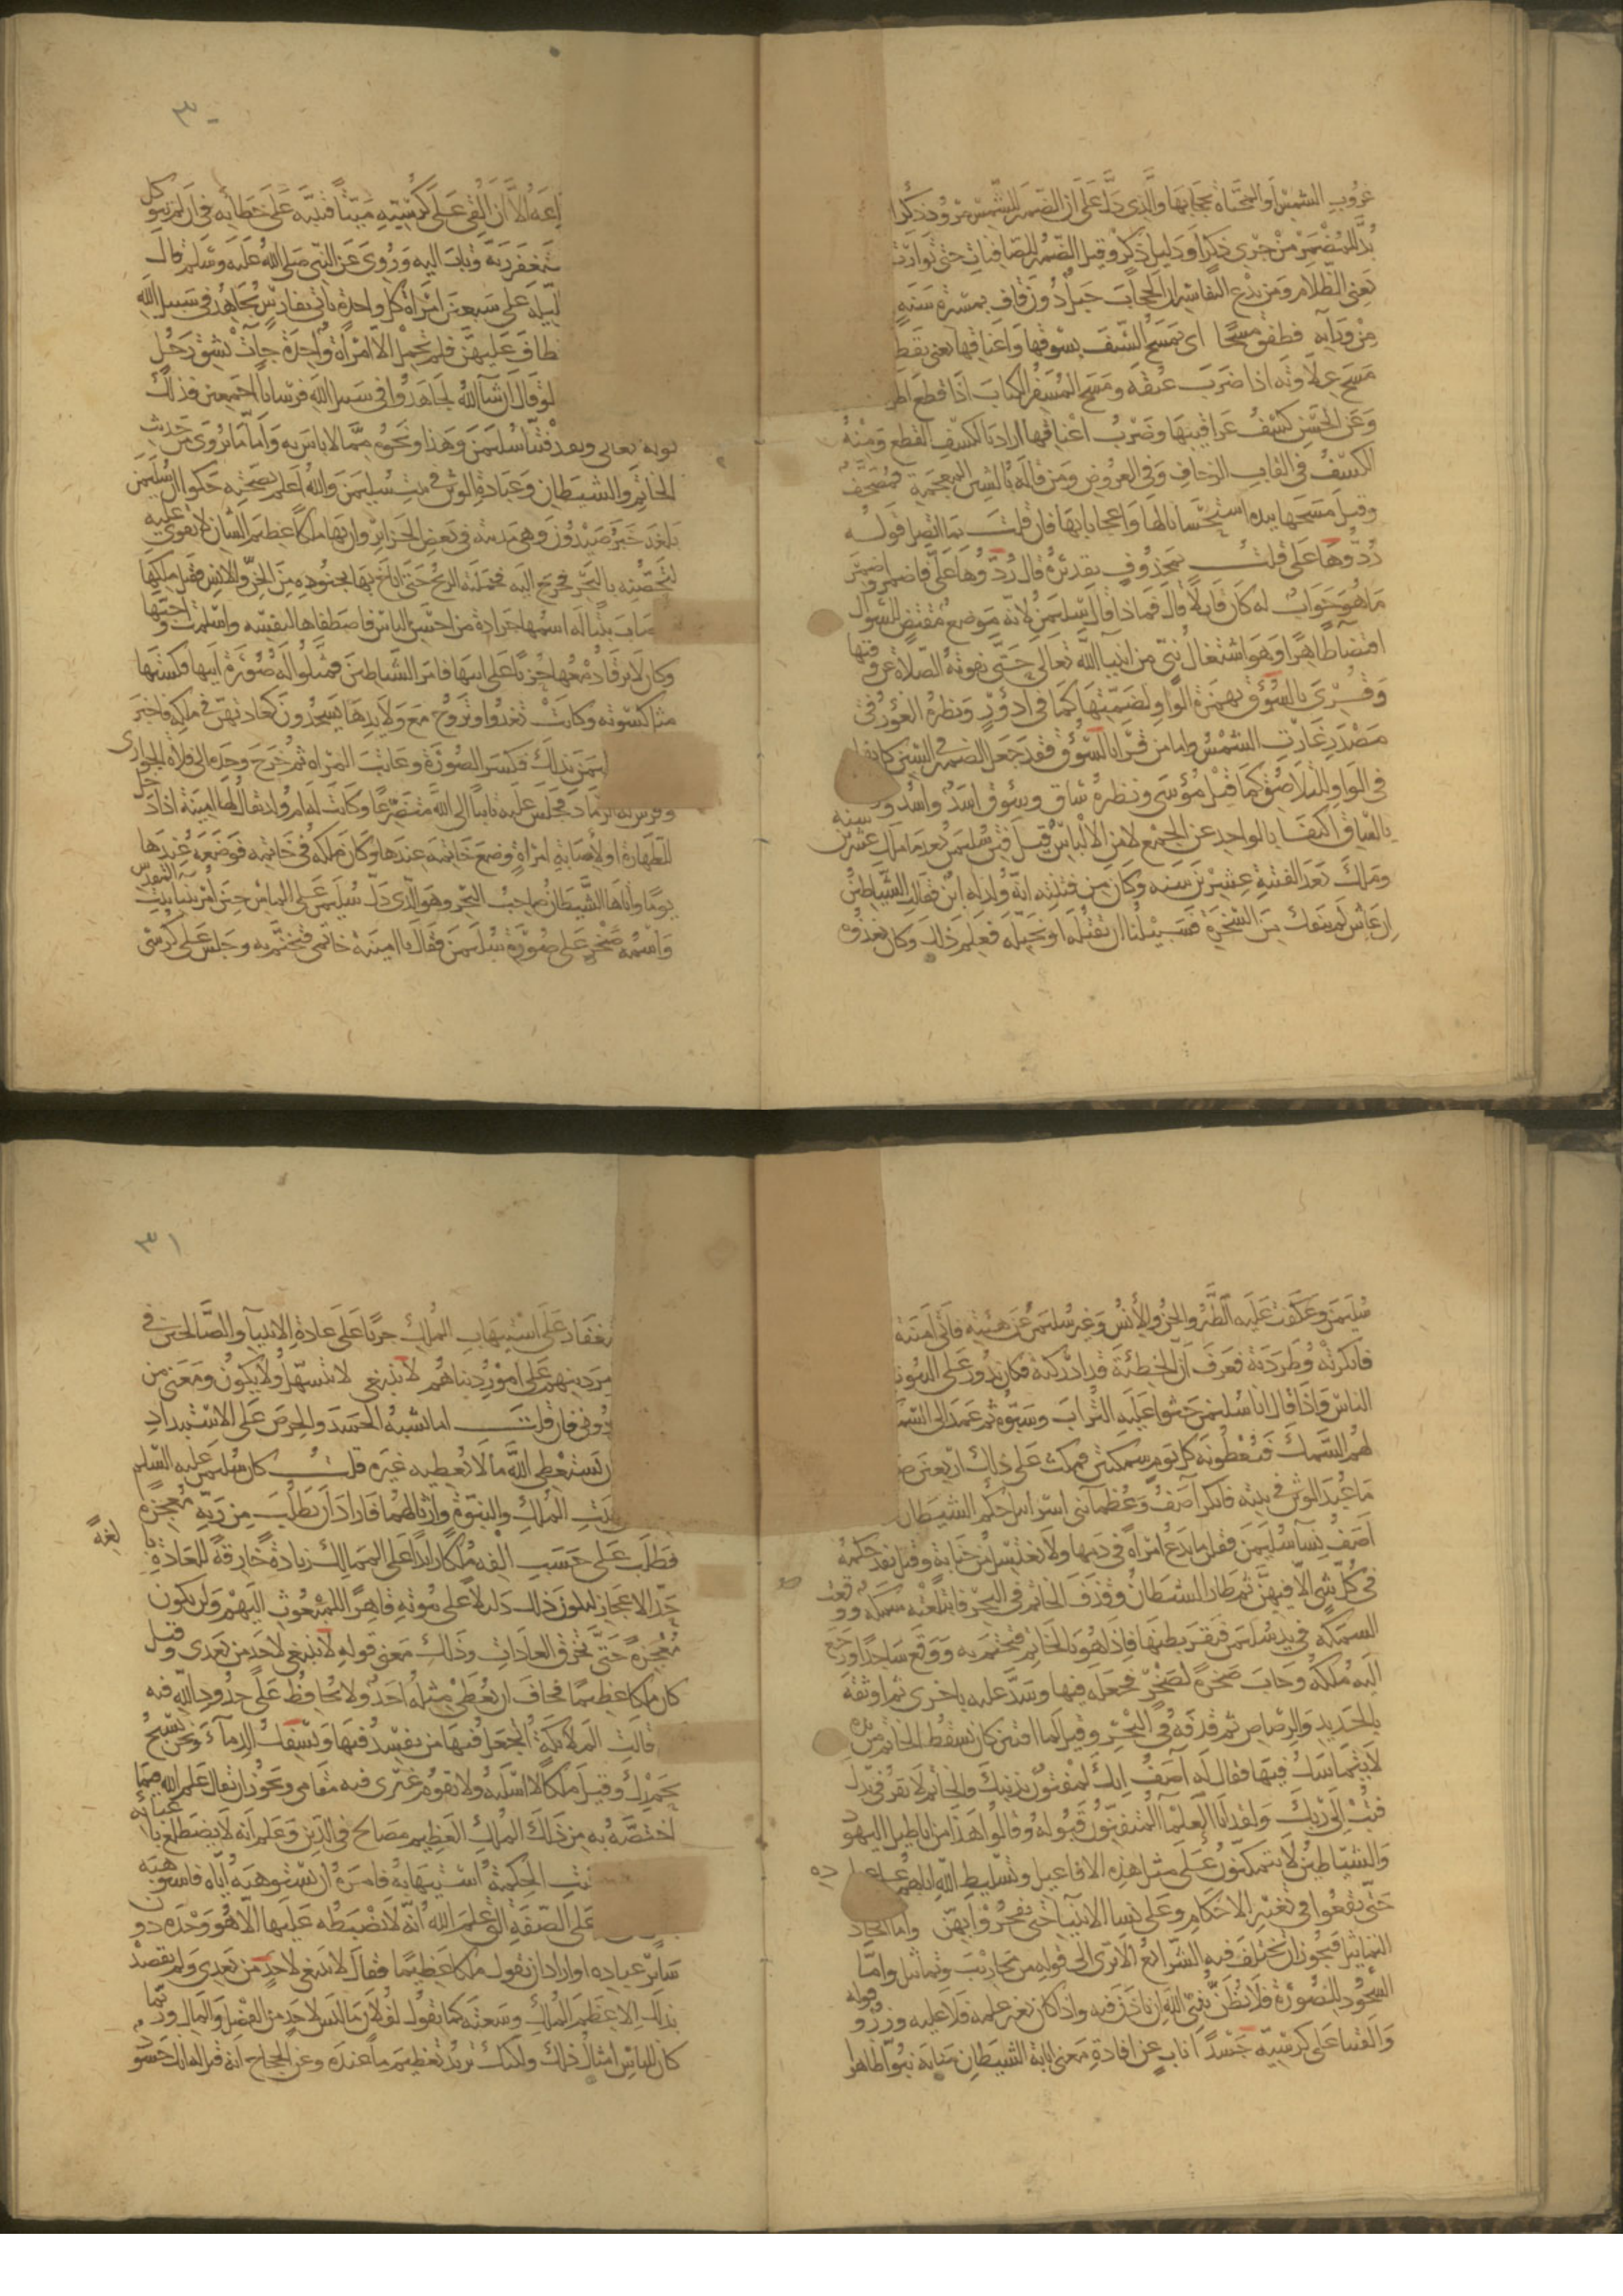 غروب الشمس او المخبّاة بحجابها والذي دل على ان الضمير للشمس مرور ذكر ا
بد للمضمر من جري ذكر او دليل ذكر وقيل الضمير للصافنات حتى توارت
يعني الظلام ومن بدع التفاسير ان الحجاب جبل دون قاف بمسيرة سنة
من ورآيه فطفق مسحا اى يمسح السيف بسوقها واعناقها يعني يقط
مسح علاوته اذا ضرب عنقه ومسح المسفر الكتاب اذا قطع اطر
وعن الحسن كسف عراقيبها وضرب اعناقها اراد بالكسف القطع ومنه
الكسف في القاب الزحاف وفى العروض ومن قاله بالشين المعجمة فمصحف
وقيل مسحها بيده استحسانا لها واعجابا بها فان قلت بما اتصل قوله
ردوها على قلت بمحذوف تقديره قال ردوها على فاضمر واضمر
ما هو جواب له كان قايلا قال فماذا قال سليمن لانه موضع مقتض للسوال
اقتضآ ظاهرا وهو اشتغال نبي من انبيا الله تعالى حتى تفوته الصلاة عن وقتها
وقرى بالسؤق بهمزة الواو لضمتها كما في ادؤر ونظره الغؤر في
مصدر غارت الشمس واما من قرا بالسؤق فقد جعل الضمة في السين كانها
في الواو للتلاصق كما قيل مؤسى ونظيره ساق وسوق اسد واسد و
بالساق اكتفا بالواحد عن الجمع لامن الالباس قيل فتن سليمن بعد ما ملك عشرين سنة
وملك بعد الفتنة عشرين سنه وكان من فتنته انه ولد له ابن فقالت الشياطين
ان عاش لم ننفك من السخرة فسبيلنا ان نقتله او نخبله فعلم ذلك وكان يغذوه
٣٠
اعه الا ان القي على كرسيه ميتا فتنبه على خطايه في ان لم يتوكل
ستغفر ربه وتاب اليه وروى عن النبي صلى الله عليه وسلم قال
ليلة على سبعين امراة كل واحدة تاتي بفارس يجاهد في سبيل الله
طاف عليهن فلم تحمل الا امراة واحدة جآت بشق رجل
لو قال ان شآ الله لجاهدوا في سبيل الله فرسانا اجمعين فذلك
قوله تعالى ولقد فتنا سليمن وهذا ونحوه مما لا باس به واما ما يروى من حديث
الخاتم والشيطان وعبادة الوثن في بيت سليمن والله اعلم بصحته حكوا ان سليمن
بلغه خبر صيدون وهي مدينة في بعض الجزاير وان بها ملكا عظيم الشان لا يقوى عليه
لتحصنه بالبحر فخرج اليه فحملته الريح حتى اناخ بها بجنوده من الجن والانس فقتل ملكها
صاب بنتا له اسمها جرادة من احسن الناس فاصطفاها لنفسه واسلمت واحبها
وكان لا يرقا دمعها حزنا على ابيها فامر الشياطين فمثلوا له صورة ابيها فكستها
مثل كسوته وكانت تغدوا وتروح مع ولايدها يسجدون كعادتهن في ملكه فاخبر
ليمن بذلك فكسر الصورة وعاقب المراه ثم خرج وحده الى فلاة
وفرش له الرماد فجلس عليه تايبا الى الله متضرعا وكانت له ام ولد يقال لها امينة اذا دخل
للطهارة او لاصابة امراة وضع خاتمه عندها وكان ملكه في خاتمه فوضعه عندها
يوما واتاها الشيطان صاحب البحر وهو الذى دل سليمن على الماس حين امر ببنا بيت المقدس
واسمه صخر على صورة سليمن فقال يا امينة خاتمى فتختم به وجلس على كرسى
سليمن وعكفت عليه الطير والجن والانس وغير سليمن عن هيئته فاتى امينة
فانكرته وطردته فعرف ان الخطيئة قد ادركته فكان يدور على البيوت
الناس فاذا قال انا سليمن حثوا عليه التراب وسبوه ثم عمد الى السما
لهم السمك فيعطونه كل يوم سمكتين فمكث على ذلك اربعين ص
ما عبد الوثن في بيته فانكر آصف وعظمآ بنى اسرائيل حكم الشيطان
آصف نسآ سليمن فقلن ما يدع امراة في دمها ولا يغتسل من جنابة وقيل نفذ حكمه
في كل شي الا فيهن ثم طار الشيطان وقذف الخاتم في البحر فابتلعته سمكه ووقعت
السمكه في يد سليمن فبقر بطنها فاذا هو بالخاتم فتختم به ووقع ساجدا ورجع
اليه ملكه وجاب صخرة لصخر فجعله فيها وسد عليه باخرى ثم اوثقه
بالحديد والرصاص ثم قذفه في البحر وقيل لما افتتن كان يسقط الخاتم من يده
لا يتماسك فيها فقال له آصف انك لمفتون بذنبك والخاتم لا يقر في يدك
فتب الى ربك ولقد ابا العلمآ المتقنون قبوله وقالوا هذا من اباطيل اليهود
والشياطين لا يتمكنون على مثل هذه الافاعيل وتسليط الله اياهم على
حتى يقعوا في تغيير الاحكام وعلى نسا الانبيآ حتى يفجروا بهن واما اتخاد
التماثيل فيجوز ان تختلف فيه الشرايع الا ترى الى قوله من محاريب وتماثيل واما
السجود للصورة فلا يظن بنبي الله ان ياذن فيه واذا كان بغير علمه فلا عليه وقوله
والقينا على كرسيه جسدا ناب عن افادة معنى انابة الشيطان منابه نبوا ظاهرا
٣١
تغفار على استيهاب الملك جريا على عادة الانبيآ والصالحين في
مر دينهم على امور دنياهم لا ينبغي لا يتسهل ولا يكون ومعنى من
دوني فان قلت اما يشبه الحسد والحرص على الاستبداد
ن يستعطي الله ما لا يعطيه غيره قلت كان سليمن عليه السلم
بيت الملك والنبوة وارثا لهما فاراد ان يطلب من ربه معجزة
فطلب على حسب الفه ملكا زايدا على الممالك زيادة خارقة للعادة با
لغة
حد الاعجاز ليكون ذلك دليلا على نبوته قاهرا للمبعوث اليهم ولن يكون
معجزة حتى تخرق العادات وذلك معنى قوله لا ينبغي لاحد من بعدى وقيل
كان ملكا عظيما فخاف ان يعطى مثله احد ولا يحافظ على حدود الله فيه
قالت الملايكة اتجعل فيها من يفسد فيها ويسفك الدمآ ونحن نسبح
بحمدك وقيل ملكا لا اسلبه ولا يقوم غيرى فيه مقامى ويجوز ان يقال علم الله فيما
اختصه به من ذلك الملك العظيم مصالح في الدين وعلم انه لا يضطلع باعبائه
ت الحكمة استيهابه فامره ان يستوهبه اياه فاستوهبه
على الصفة التي علم الله انه لا يضبطه عليها الا هو وحده دون
ساير عباده او اراد ان يقول ملكا عظيما فقال لا ينبغى لاحد من بعدى ولم يقصد
بذلك الا عظم الملك وسعته كما تقول لفلان ما ليس لاحد من الفضل والمال وربما
كان للناس امثال ذلك ولكنك تريد تعظيم ما عنده وعن الحجاج انه قيل له انك حسود